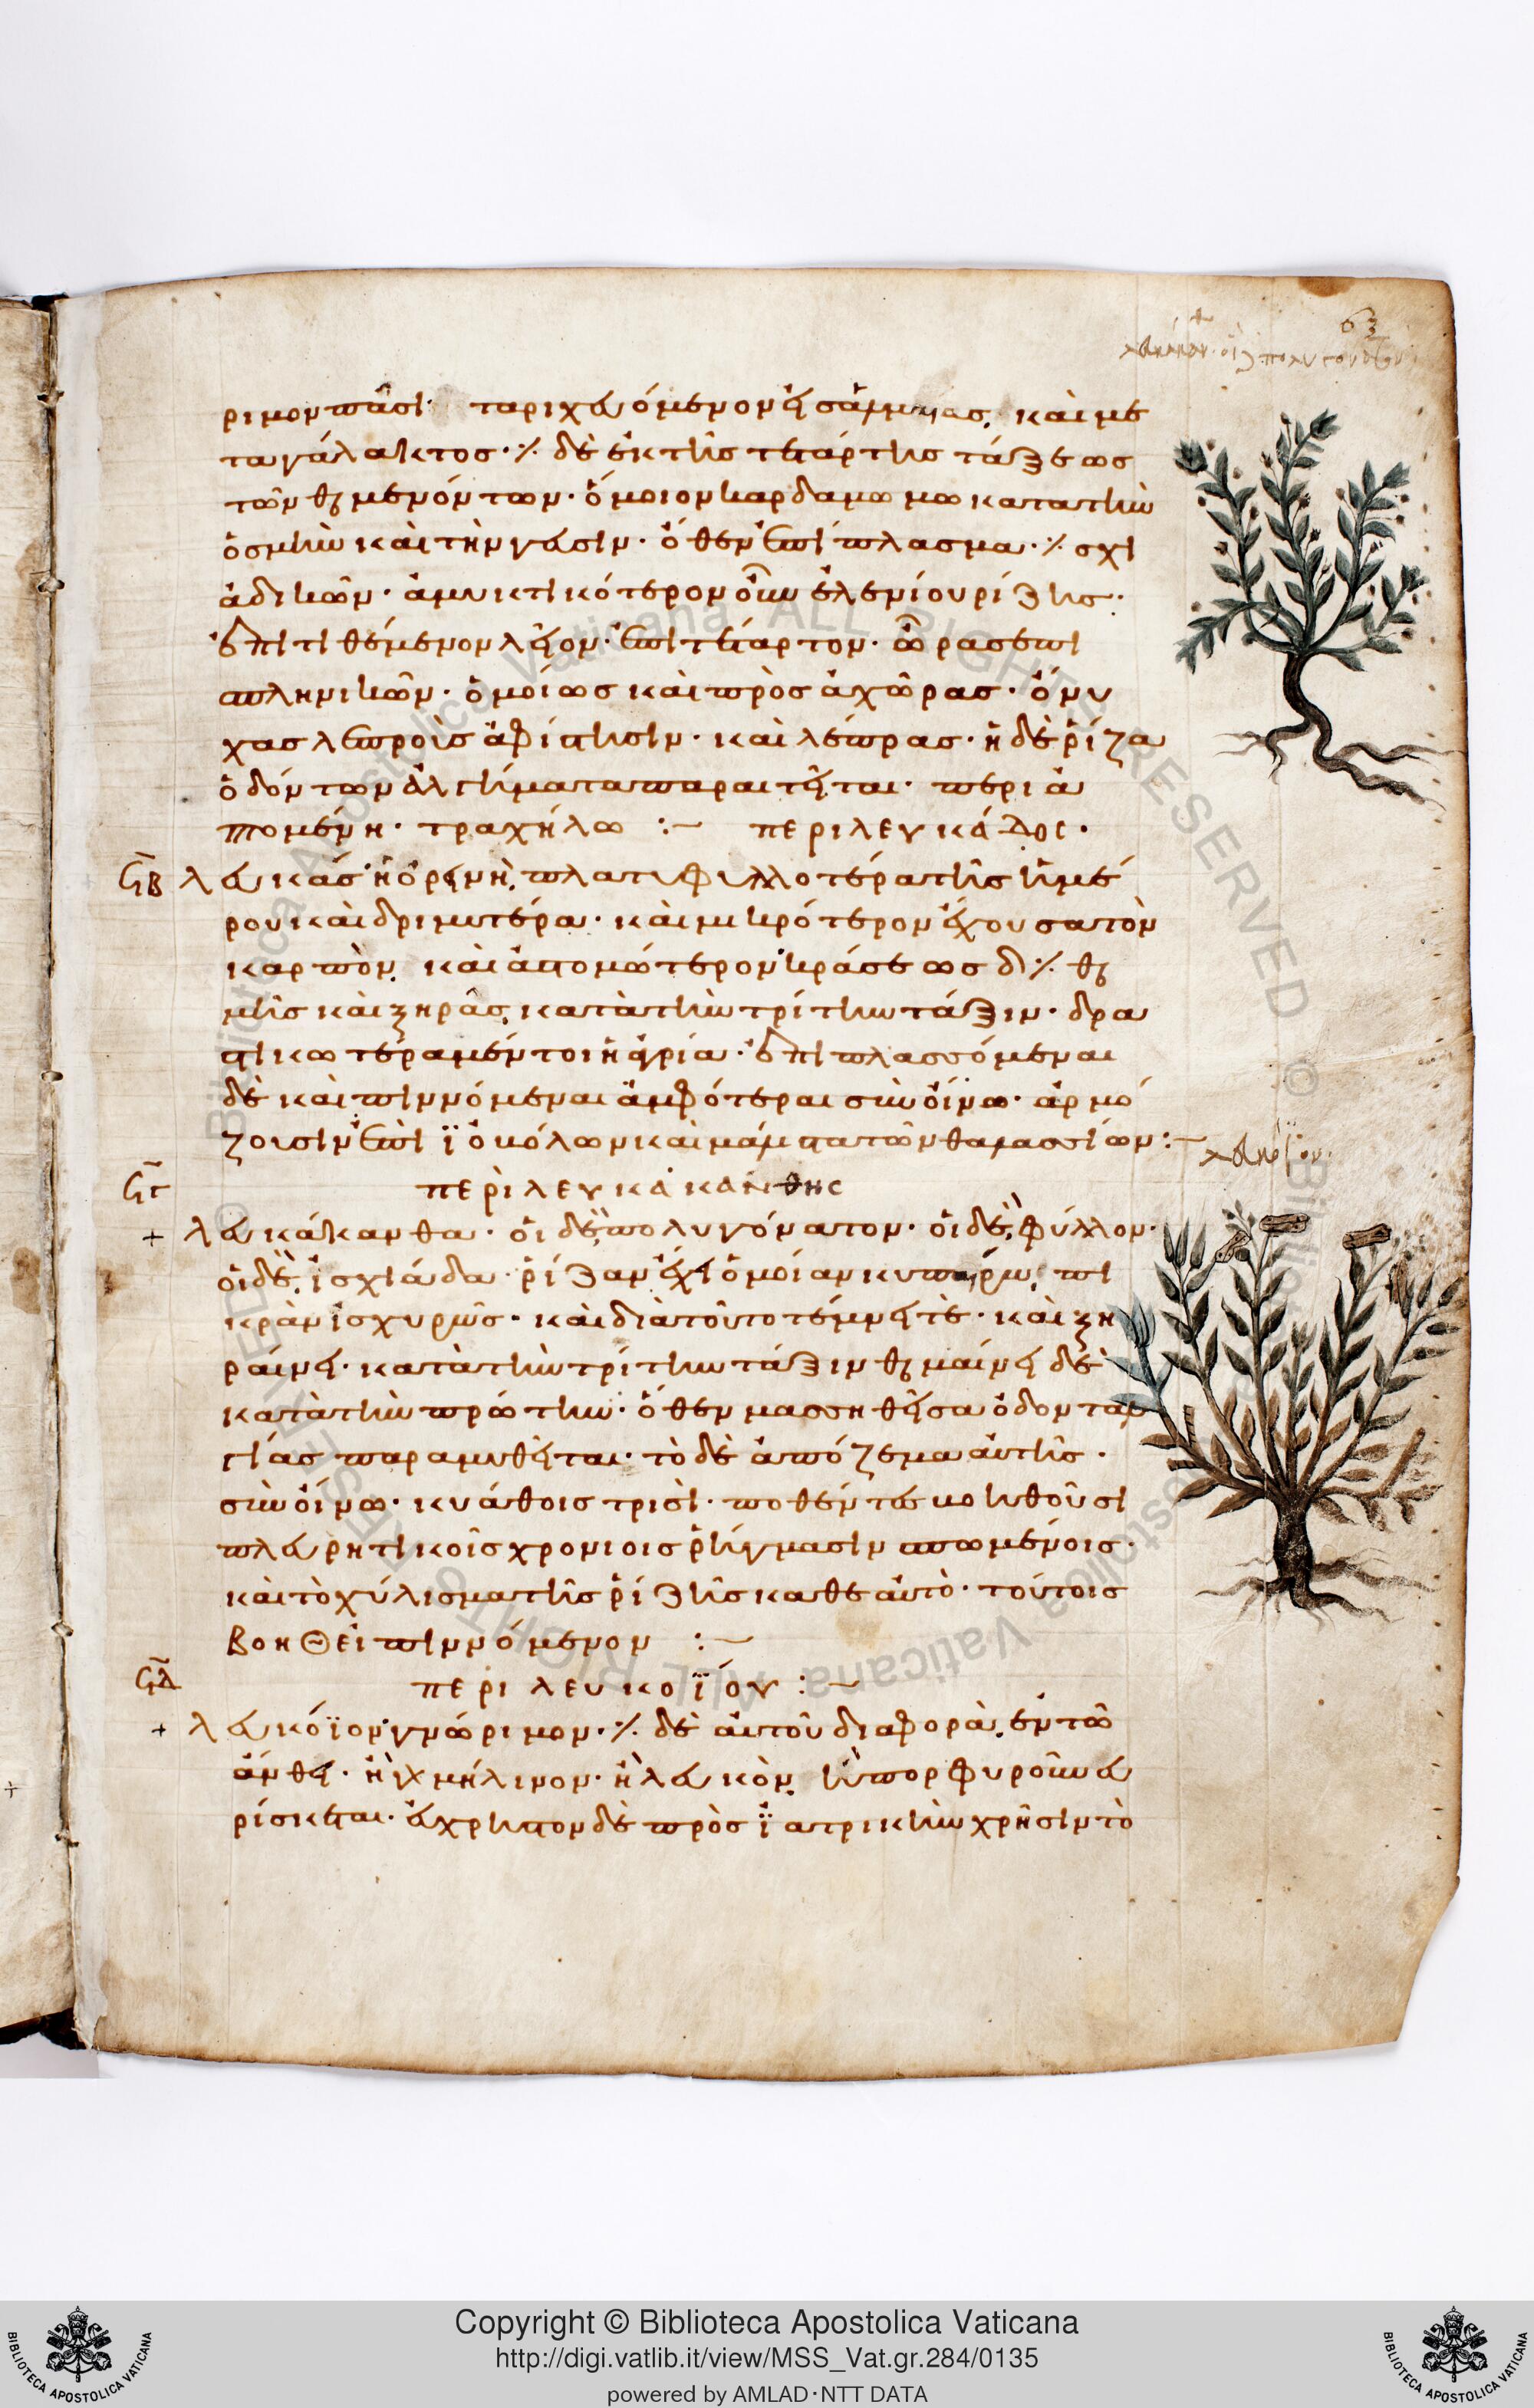 63
ριμον πᾶσι· ταριχευόμενον εἰς ἅλμην καὶ με
τα γάλακτος ·⁒ δὲ ἐκ τῆς τετάρτης τάξεως
τῶν θερμενόντων· ὅμοιον καρδαμωμω κατα τὴν
ὀσμὴν καὶ τὴν γεῦσιν· ὅθεν ἐπίπλασμα ·⁒ σχι
ἀδικῶν· ἀμυκτικότερον σὺν ἑλενίου ρίζης·
ἐπιτιθέμενον λεῖον· ἐπὶ τέταρτον· ὥρας ἐπὶ
σπληνικῶν· ὁμοίως καὶ πρὸς ἀχῶρας· ὄνυ
χας λεπροὺς ἀφίστησιν· καὶ λέπρας· ἡ δὲ ῥίζα
ὀδόντων ἀλγήματα παραιτεῖται· περι ἁ
πτομένη· τραχήλω :~ ΠΕΡΙ ΛΕΥΚΆΔΟC·
λευκάς ἡ ὀρεινὴ, πλατυφυλλοτέρα τῆς ἡμέ
ρου καὶ δριμυτέρα· καὶ μικρότερον ἔχουσα τὸν
καρπὸν, καὶ ἀτονώτερον κράσεως δ ⁒ θερ
μῆς καὶ ξηρᾶς, κατὰ τὴν τρίτην τάξιν· δρα
στικωτέρα μέντοι ἡ ἀγρία· ἐπιπλασσόμεναι
δὲ καὶ πιννόμεναι ἀμφότεραι σὺν οἴνω· ἁρμό
ζουσιν ἐπὶ ϊοβόλων καὶ μάλιστα τῶν θαλασσίων :~
ΠΕΡῚ ΛΕΥΚΑΚΆΝΘΗC
+ λευκάκανθα· οἱ δὲ πολυγόνατον· οἱ δὲ, φύλλον·
οἱ δὲ, ἰσχιάδα· ῥίζαν ἔχει ὁμοίαν κυπείρω, πι
κρὰν ἰσχυρῶς· καὶ διὰ τοῦτο τέμνει τὲ· καὶ ξη
ραίνει· κατὰ τὴν τρίτην τάξιν θερμαίνει δὲ
κατὰ τὴν πρώτην· ὅθεν μασσηθεῖσα ὀδονταλ
γίας παραμυθεῖται· τὸ δὲ ἀπόζεμα αὐτῆς·
σὺν οἴνω· κυάθοις τρισὶ· ποθέντος βοηθοῦσι
πλευρητικοῖς χρονίοις ῥήγμασιν σπωμένοις·
καὶ τὸ χύλισμα τῆς ῥίζης καθ' ἑαυτὸ· τούτοις
βοηθεῖ πιννόμενον :~
ΠΕΡῚ ΛΕΥΚΟΪ́ΟΥ :~
+ λευκόϊον γνώριμον ·⁒ δὲ αὐτοῦ διαφορὰ, ἐν τῶ
ἄνθει· ἢ γὰρ μήλινον· ἢ λευκὸν, ἢ πορφυροῦν εὑ
ρίσκεται· εὔχρηστον δὲ πρὸς ϊατρικὴν χρῆσιν τὸ
Copyright © Biblioteca Apostolica Vaticana
http://digi.vatlib.it/view/MSS_Vat.gr.284/0135
powered by AMLAD·NTT DATA